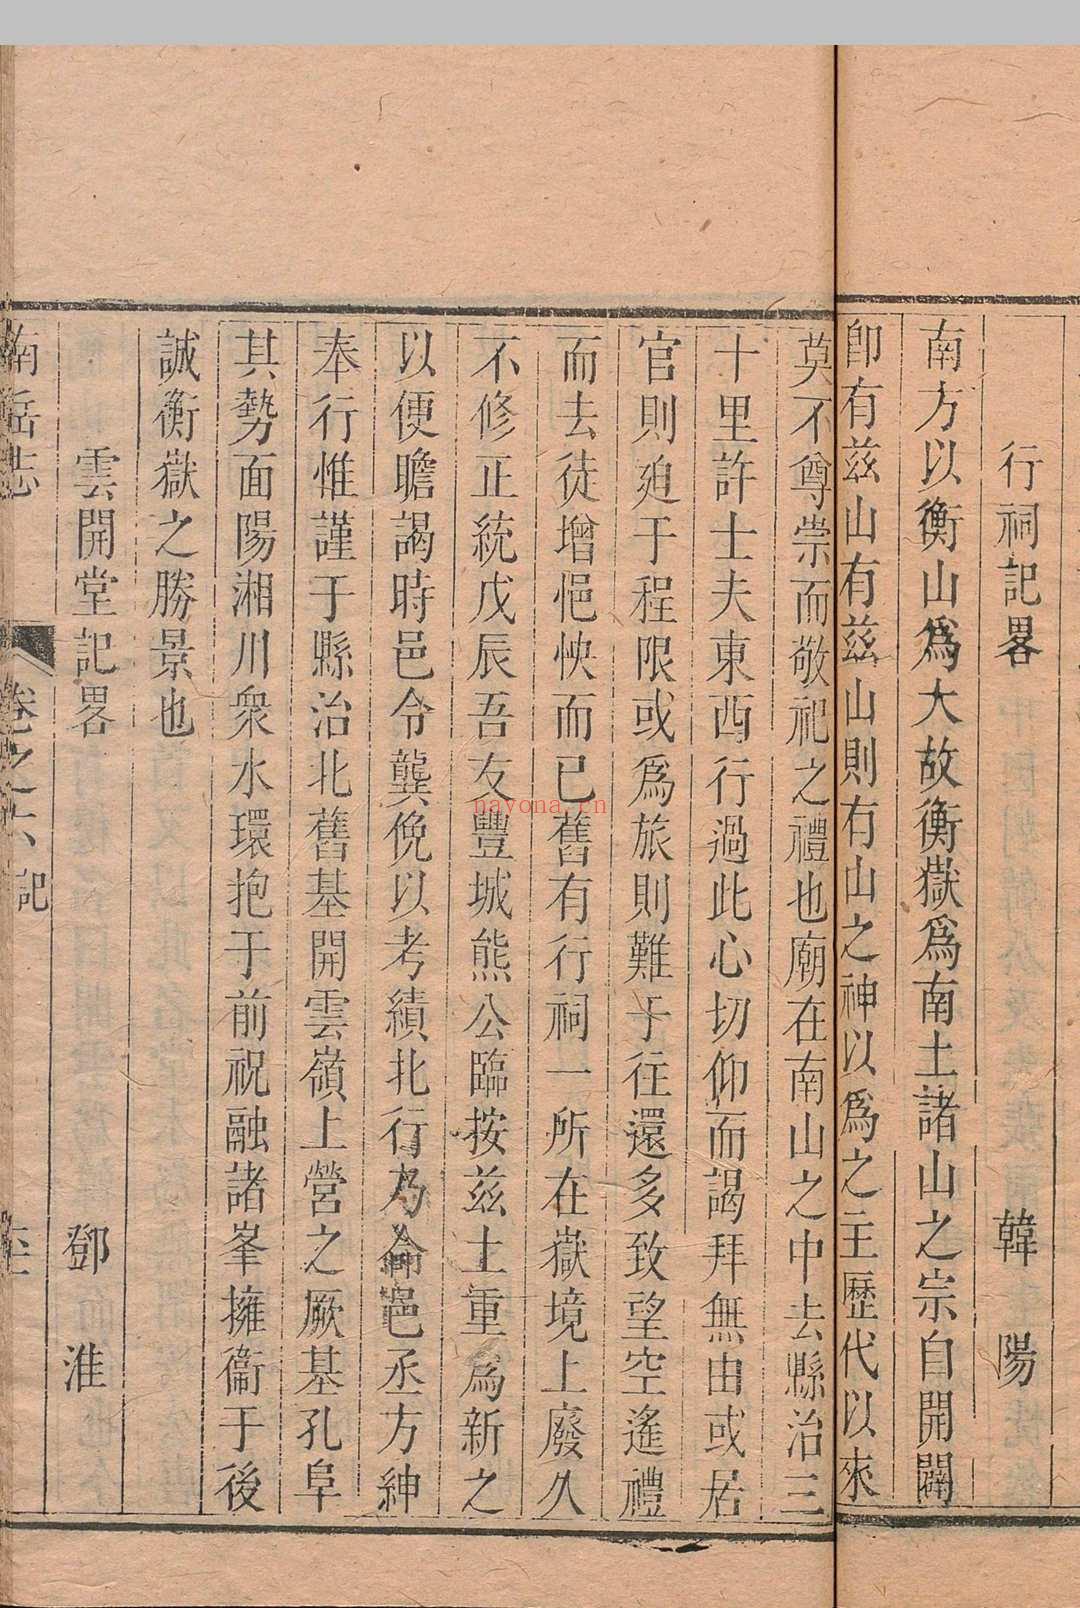 行祠記畧 韓陽
南方以衡山爲大故衡嶽爲南土諸山之宗自開闢
卽有兹山有兹山則有山之神以爲之主歷代以來
莫不尊崇而敬祀之禮也廟在南山之中去縣治三
十里許士夫東西行過此心切仰而謁拜無由或居
官則廹于程限或爲旅則難于往還多致望空遙禮
而去徒增悒怏而已舊有行祠一所在嶽境上廢久
不修正統戊辰吾友豐城熊公臨按兹土重爲新之
以便瞻謁時邑令龔俛以考績北行乃命邑丞方紳
奉行惟謹于縣治北舊基開雲嶺上營之厥基孔阜
其勢面陽湘川衆水環抱于前祝融諸峯擁衞于後
誠衡嶽之勝景也
雲開堂記畧 鄧淮
南岳志 卷之六 記
nayona.cn